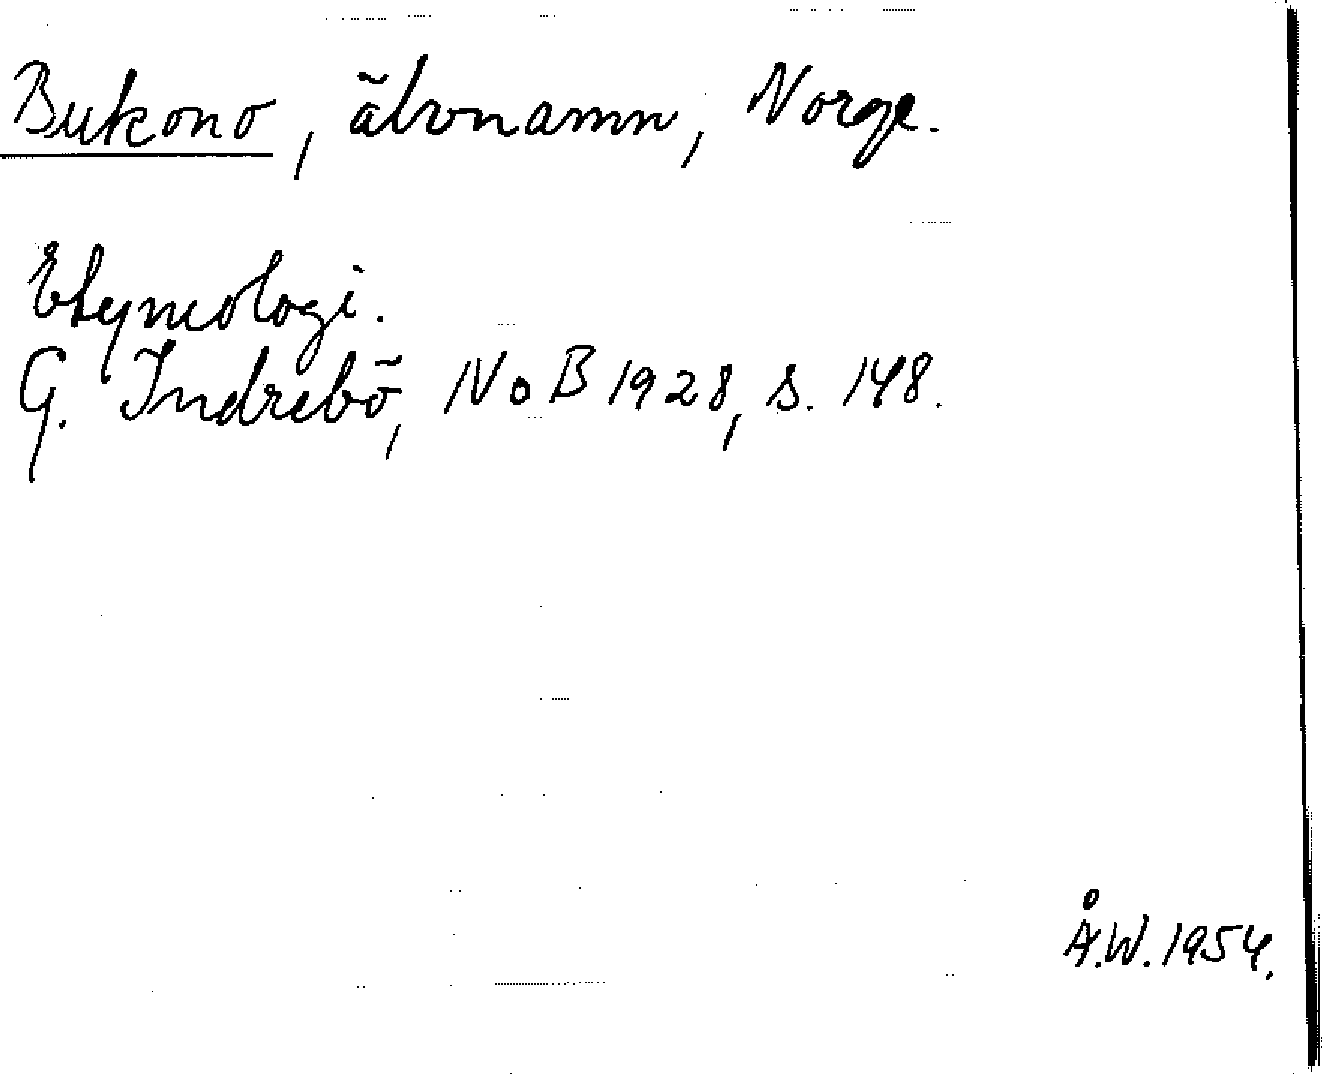 Bukono, älvnamn, Norge.
Etymologi.
G. Indrebö, NoB 1928, s. 148.
Å.W. 1954.